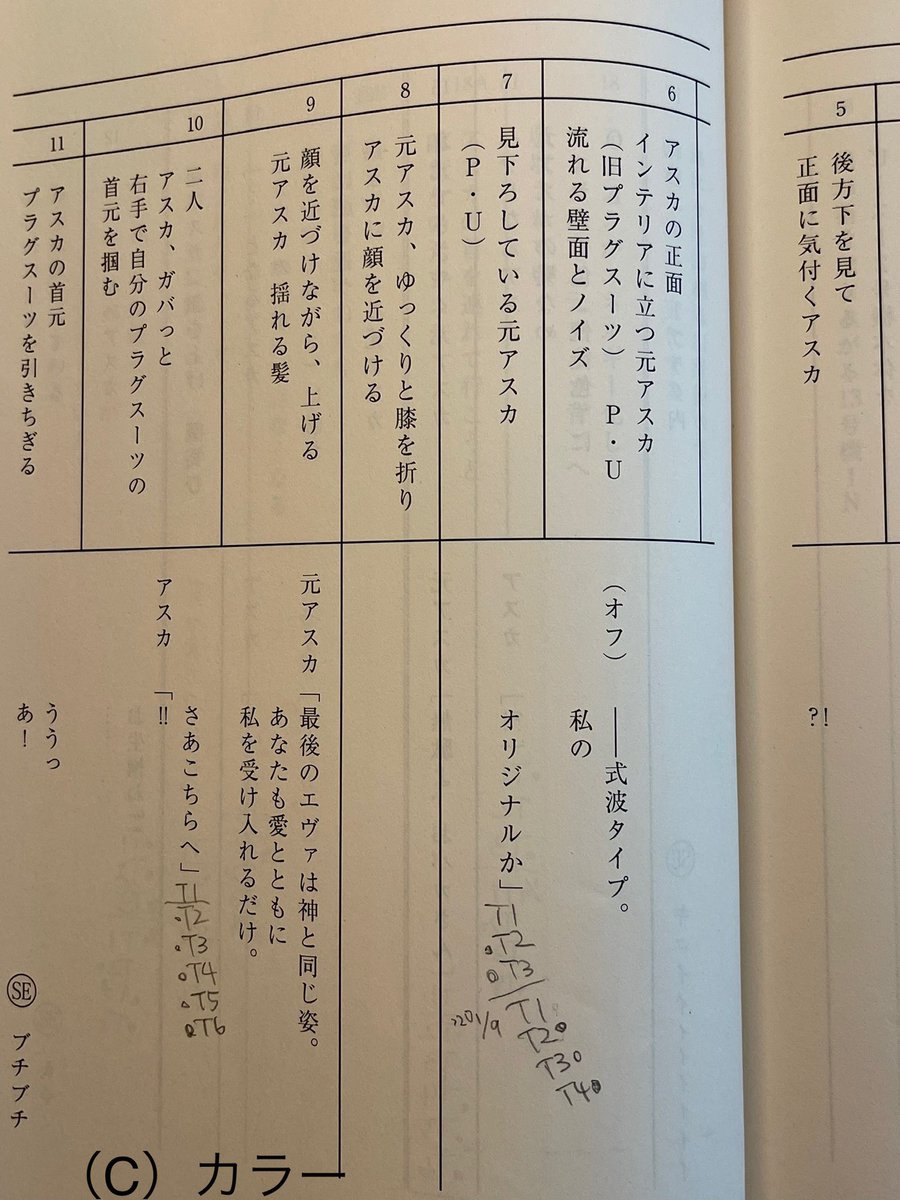 5
後方下を見て
正面に気付くアスカ
?!
6
アスカの正面
インテリアに立つ元アスカ
（旧プラグスーツ）　P・U
流れる壁面とノイズ
（オフ）　――式波タイプ。
私の
7
見下ろしている元アスカ
（P・U）
オリジナルか」
T1
T2
T3
T1
T2
T3
T4
8
元アスカ、ゆっくりと膝を折り
アスカに顔を近づける
9
顔を近づけながら、上げる
元アスカ　揺れる髪
元アスカ「最後のエヴァは神と同じ姿。
あなたも愛とともに
私を受け入れるだけ。
さあこちらへ」
T1
T2
T3
T4
T5
T6
10
二人
アスカ、ガバっと
右手で自分のプラグスーツの
首元を掴む
アスカ　「!!
11
アスカの首元
プラグスーツを引きちぎる
ううっ
あ！
SE　ブチブチ
（C）カラー